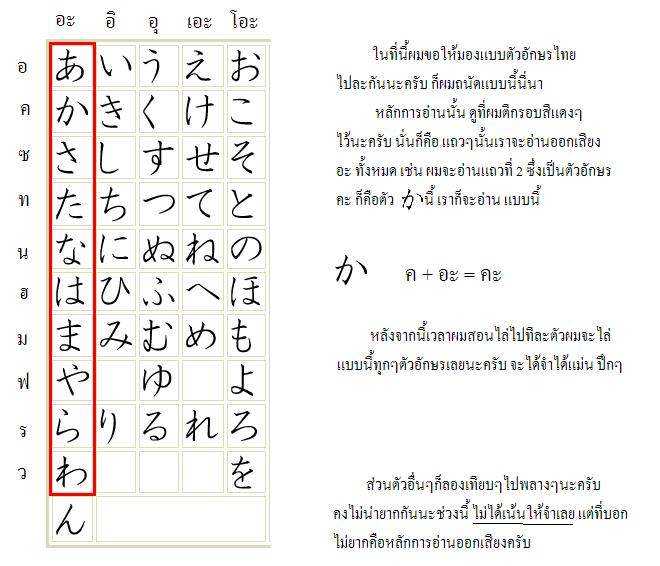 อะ อิ อุ เอะ โอะ
อ あ い う え お
ค か き く け こ
ซ さ し す せ そ
ท た ち つ て と
น な に ぬ ね の
ฮ は ひ ふ へ ほ
ม ま み む め も
ฟ や ゆ よ
ร ら り る れ ろ
ว わ を
ん
ในที่นี้ผมขอให้มองแบบตัวอักษรไทย
ไปละกันนะครับ ก็ผมถนัดแบบนี้นี่นา
หลักการอ่านนั้น ดูที่ผมตีกรอบสีแดงๆ
ไว้นะครับ นั่นก็คือ แถวๆนั้นเราจะอ่านออกเสียง
อะ ทั้งหมด เช่น ผมจะอ่านแถวที่ 2 ซึ่งเป็นตัวอักษร
คะ ก็คือตัว か นี้ เราก็จะอ่าน แบบนี้
か ค + อะ = คะ
หลังจากนี้เวลาผมสอนไล่ไปทีละตัวผมจะไล่
แบบนี้ทุกๆตัวอักษรเลยนะครับ จะได้จำได้แม่น ปึกๆ
ส่วนตัวอื่นๆก็ลองเทียบๆไปพลางๆนะครับ
คงไม่น่ายากกันนะช่วงนี้ ไม่ได้เน้นให้จำเลย แต่ที่บอก
ไม่ยากคือหลักการอ่านออกเสียงครับ